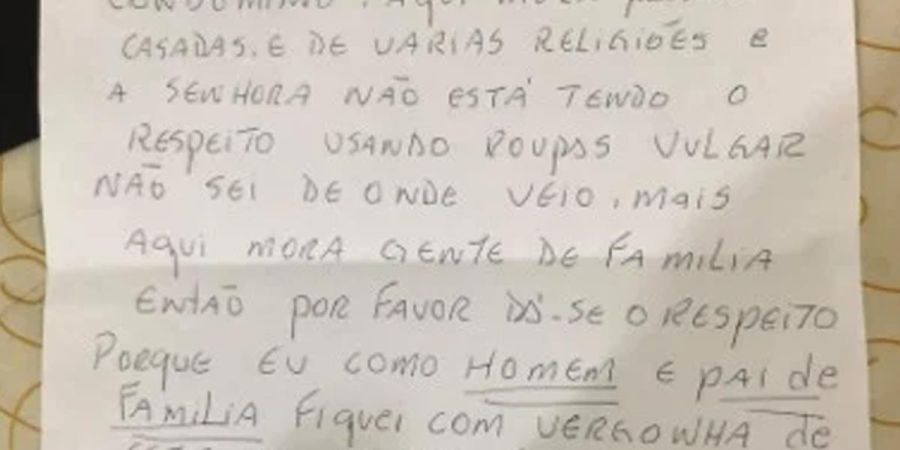 CONDOMINIO. AQUI MORA
CASADAS. E DE VARIAS RELIGIÕES e
A SENHORA NÃO ESTÁ TENDO O
RESPEITO USANDO ROUPAS VULGAR
NÃO SEI DE ONDE VEIO, mais
Aqui MORA GENTE DE FAMILIA
ENTÃO POR FAVOR DÁ-SE O RESPEITO
PORQUE EU COMO HOMEM E PAI de
FAMILIA FIQUEI COM VERGONHA de